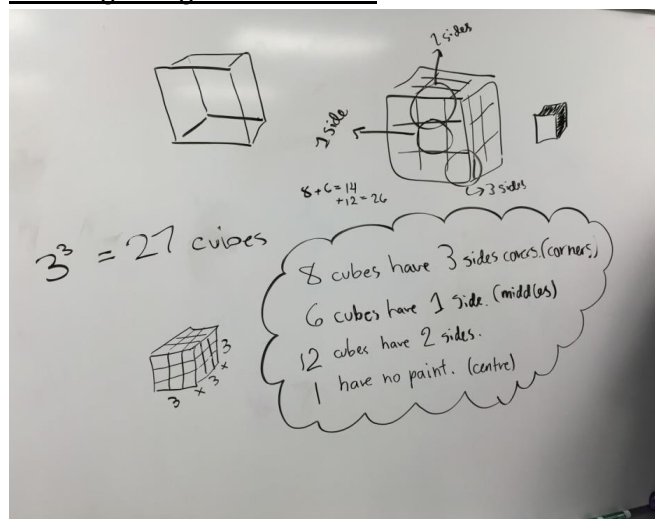 2 sides
1 side
8+6=14
+12=26
3 sides
3³ = 27 cubes
8 cubes have 3 sides covers. (corners)
6 cubes have 1 side. (middles)
12 cubes have 2 sides.
1 have no paint. (centre)
3 x 3 x 3